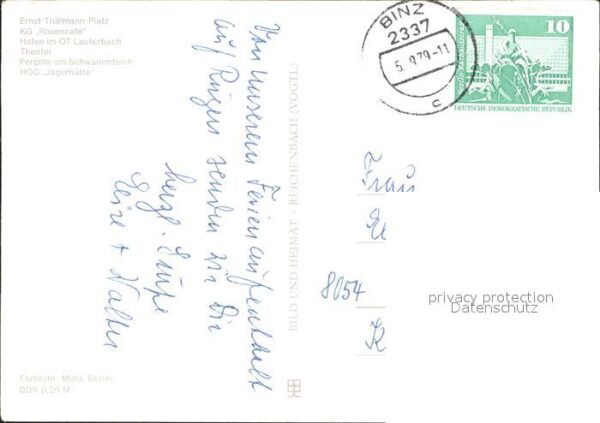 Ernst-Thälmann-Platz
KG „Rosencafé"
Hafen im OT Lauterbach
Theater
Pergola am Schwanenteich
HOG „Jägerhütte"
Von unserem Ferienaufenthalt
auf Rügen senden wir Dir
herzl. Grüße
+ Walter
Farbfoto: Mohr, Berlin
DDR 0,20 M
BILD UND HEIMAT · REICHENBACH (VOGTL)
BINZ
2337
5.-9.79-11
c
10
DEUTSCHE DEMOKRATISCHE REPUBLIK
Frau
8054
K
privacy protection
Datenschutz